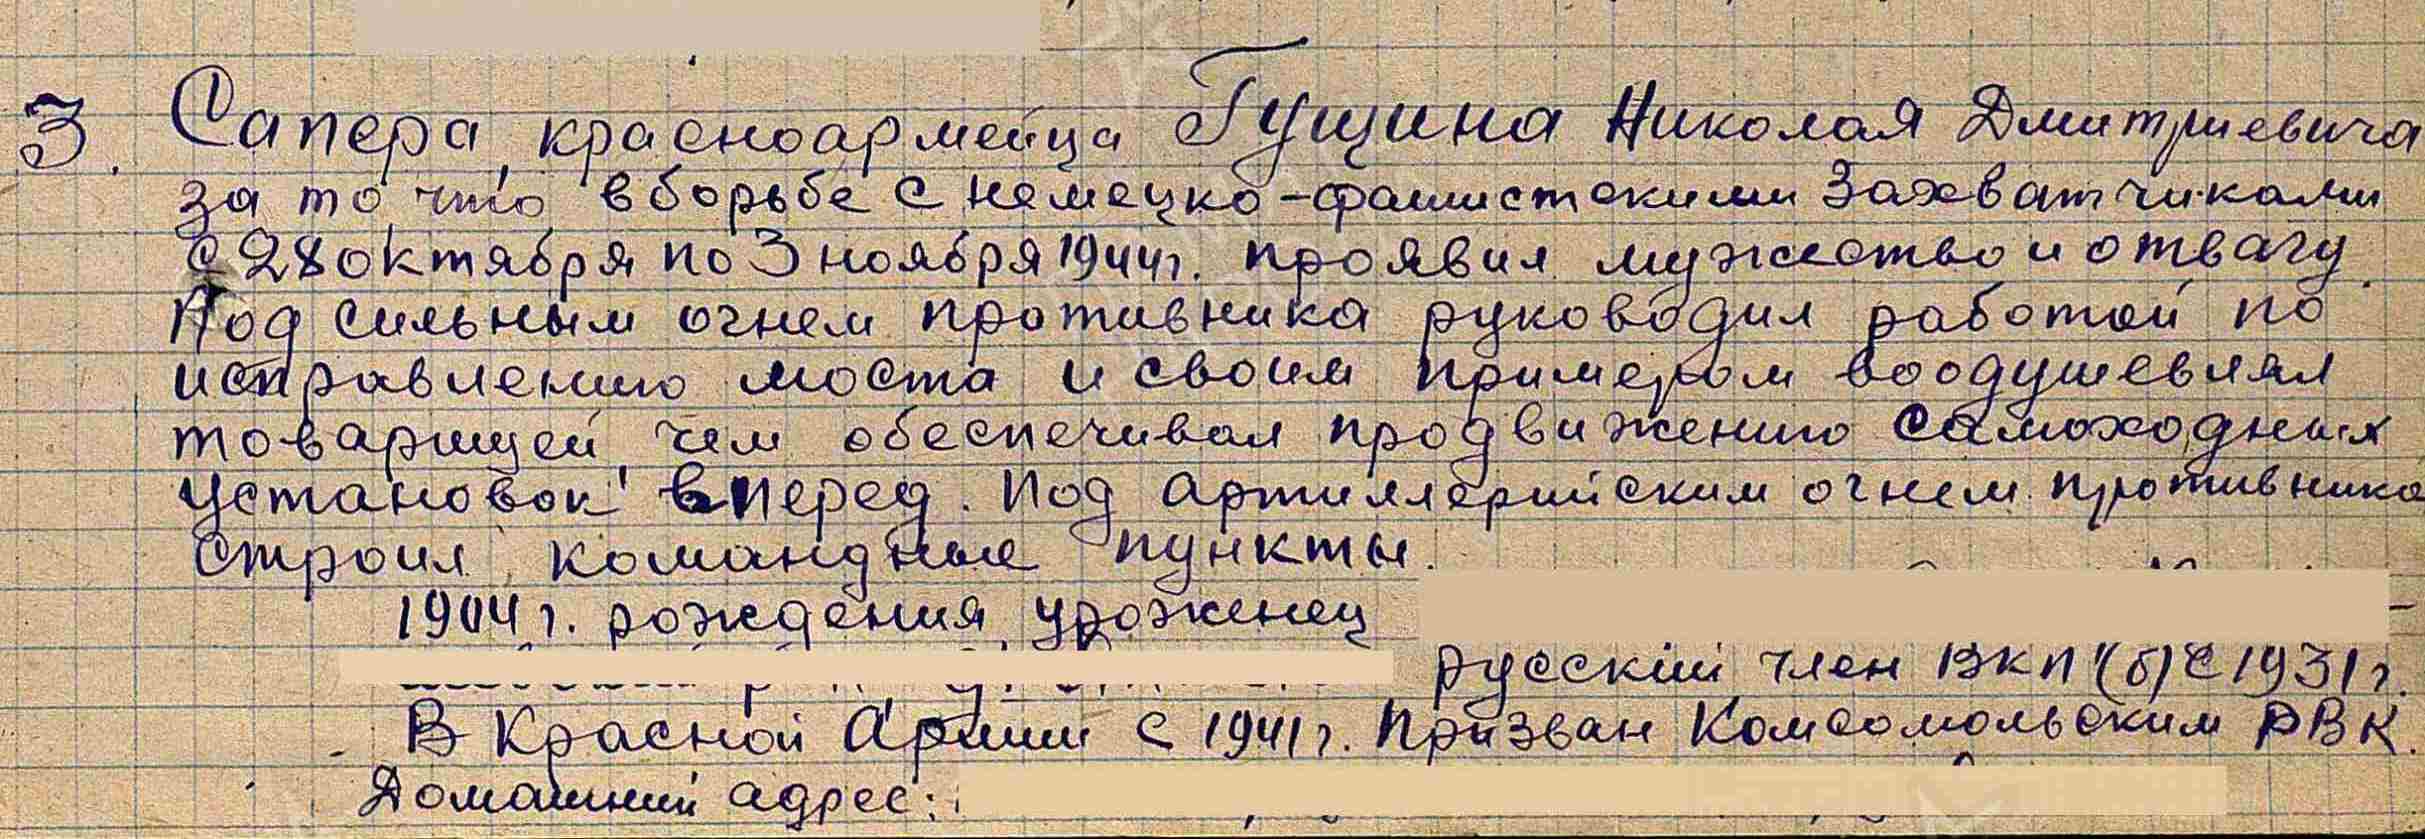 3. Сапера, красноармейца Гущина Николая Дмитриевича
за то что в борьбе с немецко-фашистскими захватчиками
с 28 октября по 3 ноября 1944г. проявил мужество и отвагу.
Под сильным огнем противника руководил работой по
исправлению моста и своим примером воодушевлял
товарищей, чем обеспечивал продвижению самоходных
установок вперед. Под артиллерийским огнем противника
строил командные пункты.
1904 г. рождения, уроженец
русский член ВКП(б) с 1931 г.
В Красной Армии с 1941 г. Призван Комсомольским РВК.
Домашний адрес: